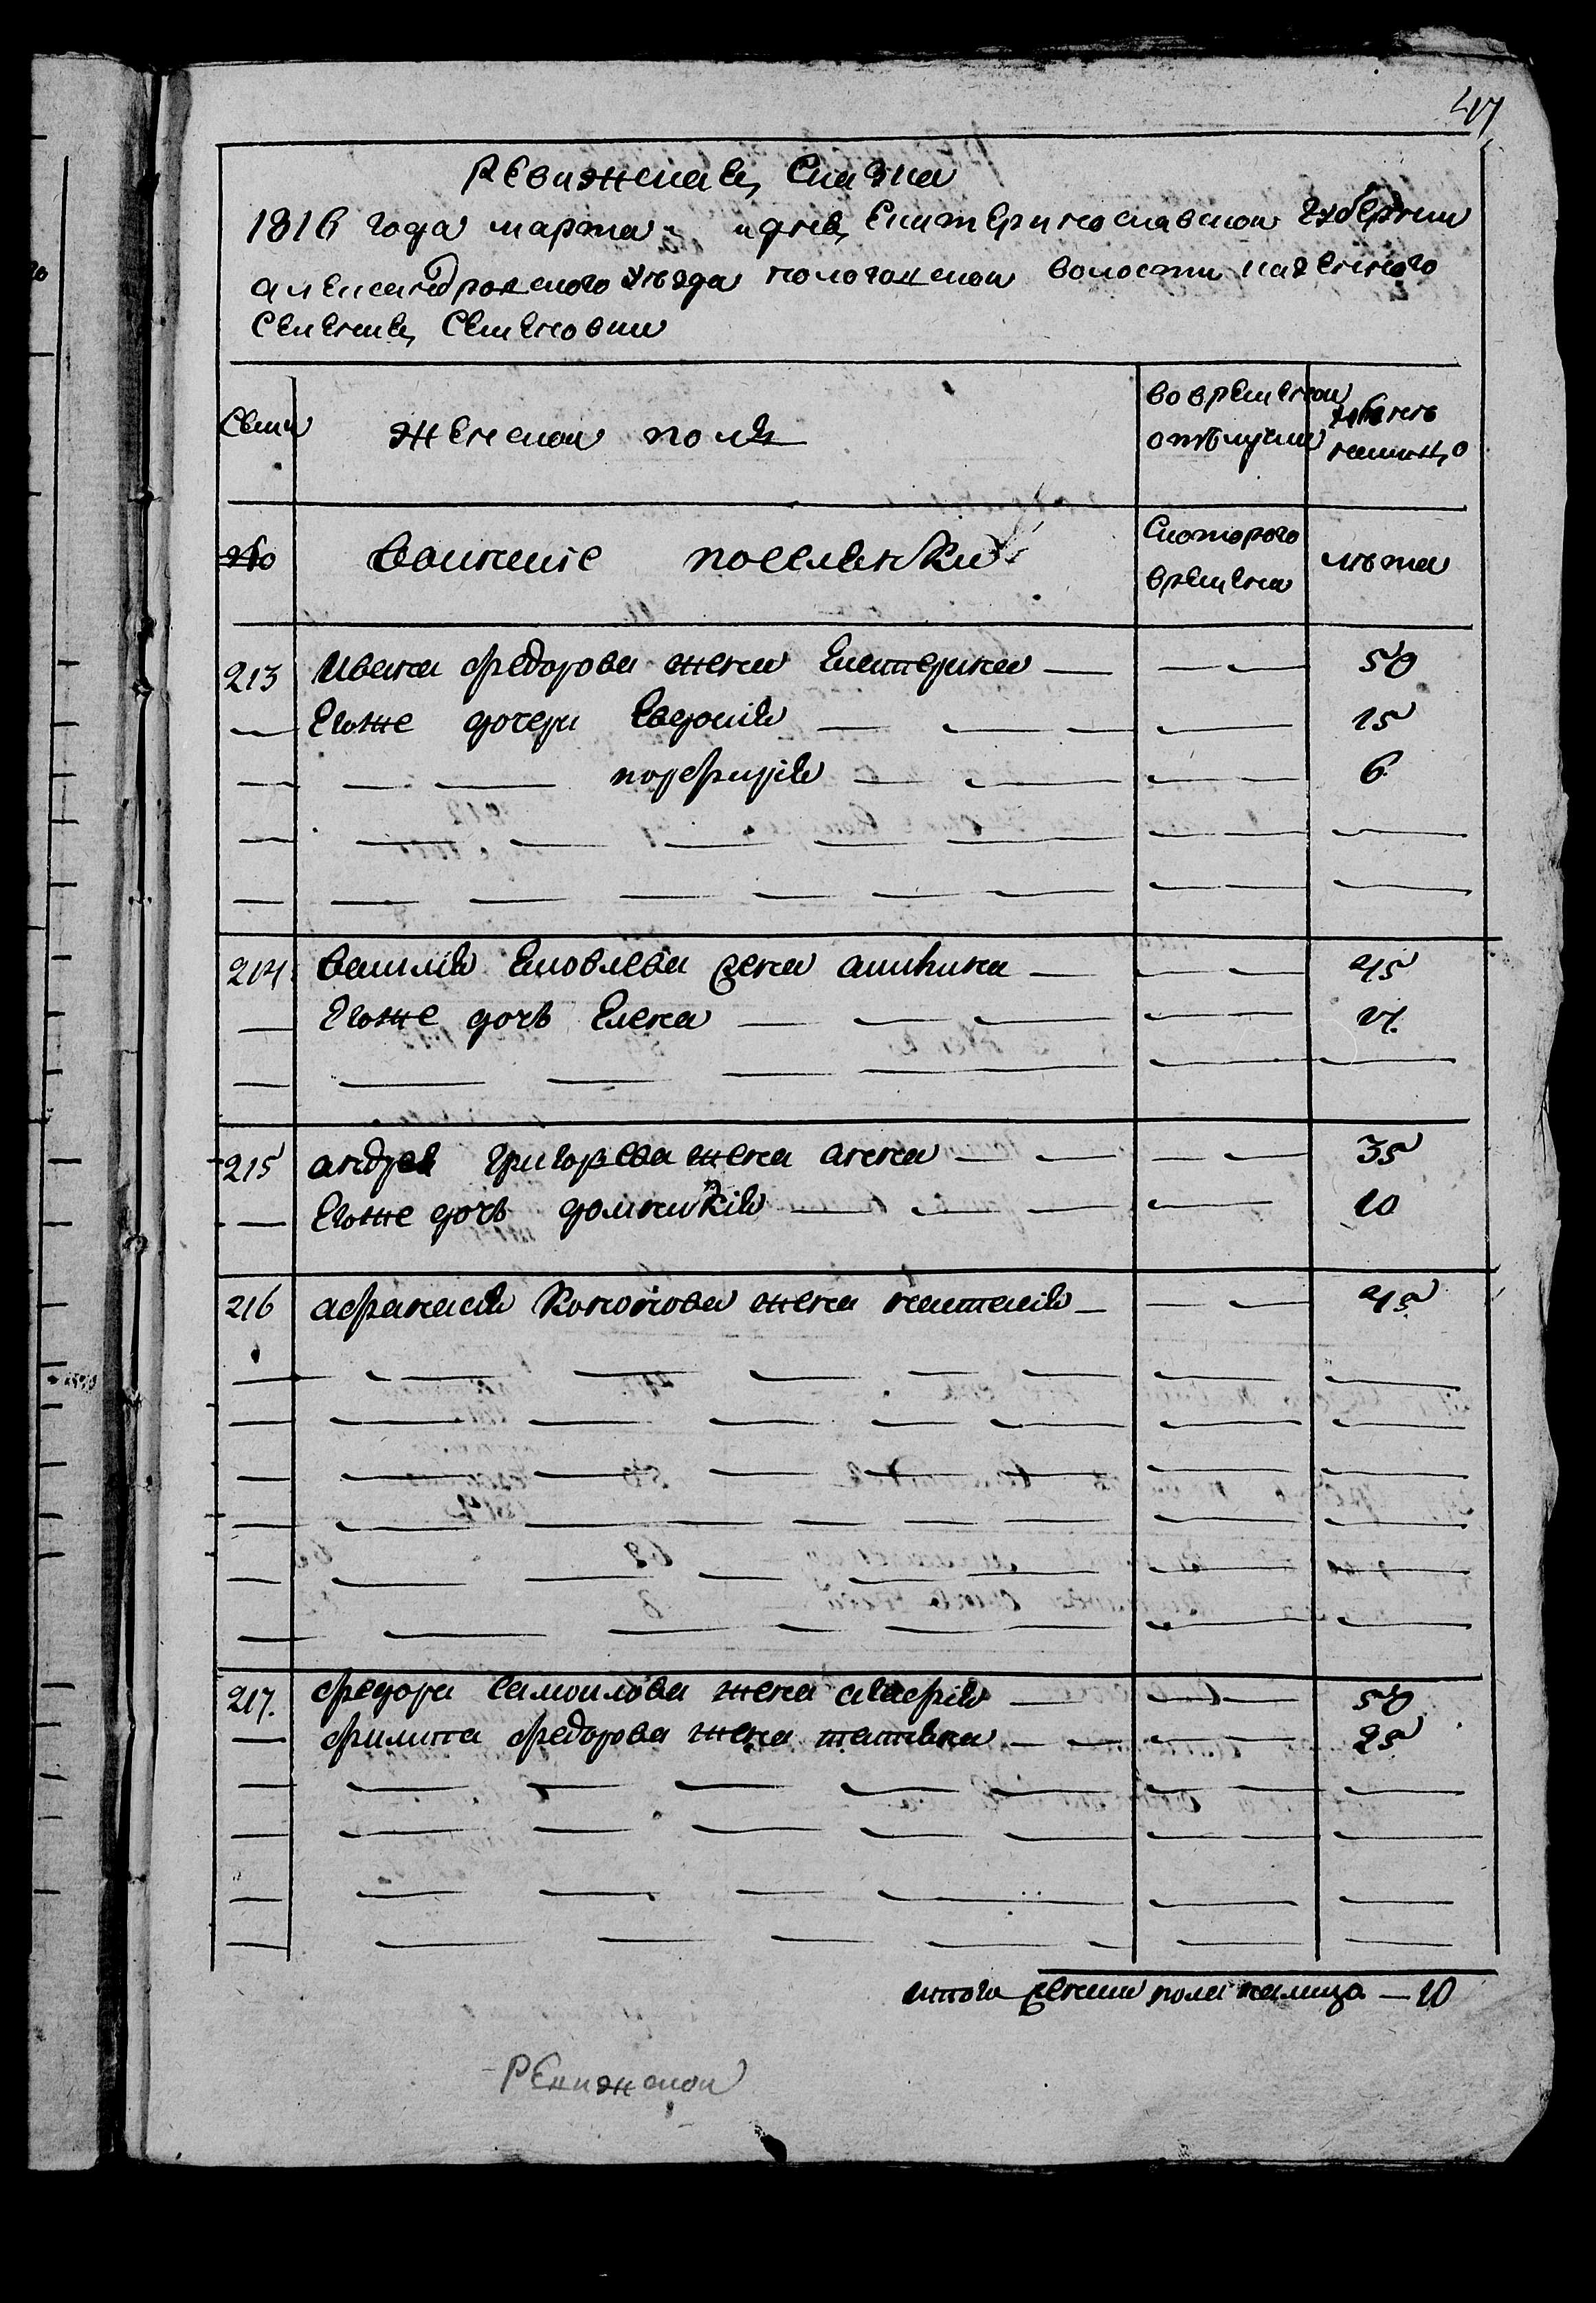 47
Ревижская Сказка
1816 года марта " " дня Екатеринославской губернии
александровского уезда пологовской волости казенного
Селения Семеновки
Семи
женской пола
во временной
отълучки
ныне
налицо
№
воинские поселянки
С которого
времяни
лета
213 Ивана федорова жена Екатерина — — — 50
— Егоже дочери Евдокия — — — — 15
— — — порфирия — — — — 6
214. василия яковлева жена акилина — — — 45
— Егоже дочь Елена — — — — 4.
215 андрея григорьева жена анна — — — — 35
— Егоже дочь домникия — — — — 10
216 афанасия Кононова жена настасия — — — 45
217. федора самоилова жена агафия — — — 50
— филипа федорова жена татьяна — — — — 25
итого женска пола налицо — 10
Ревижской